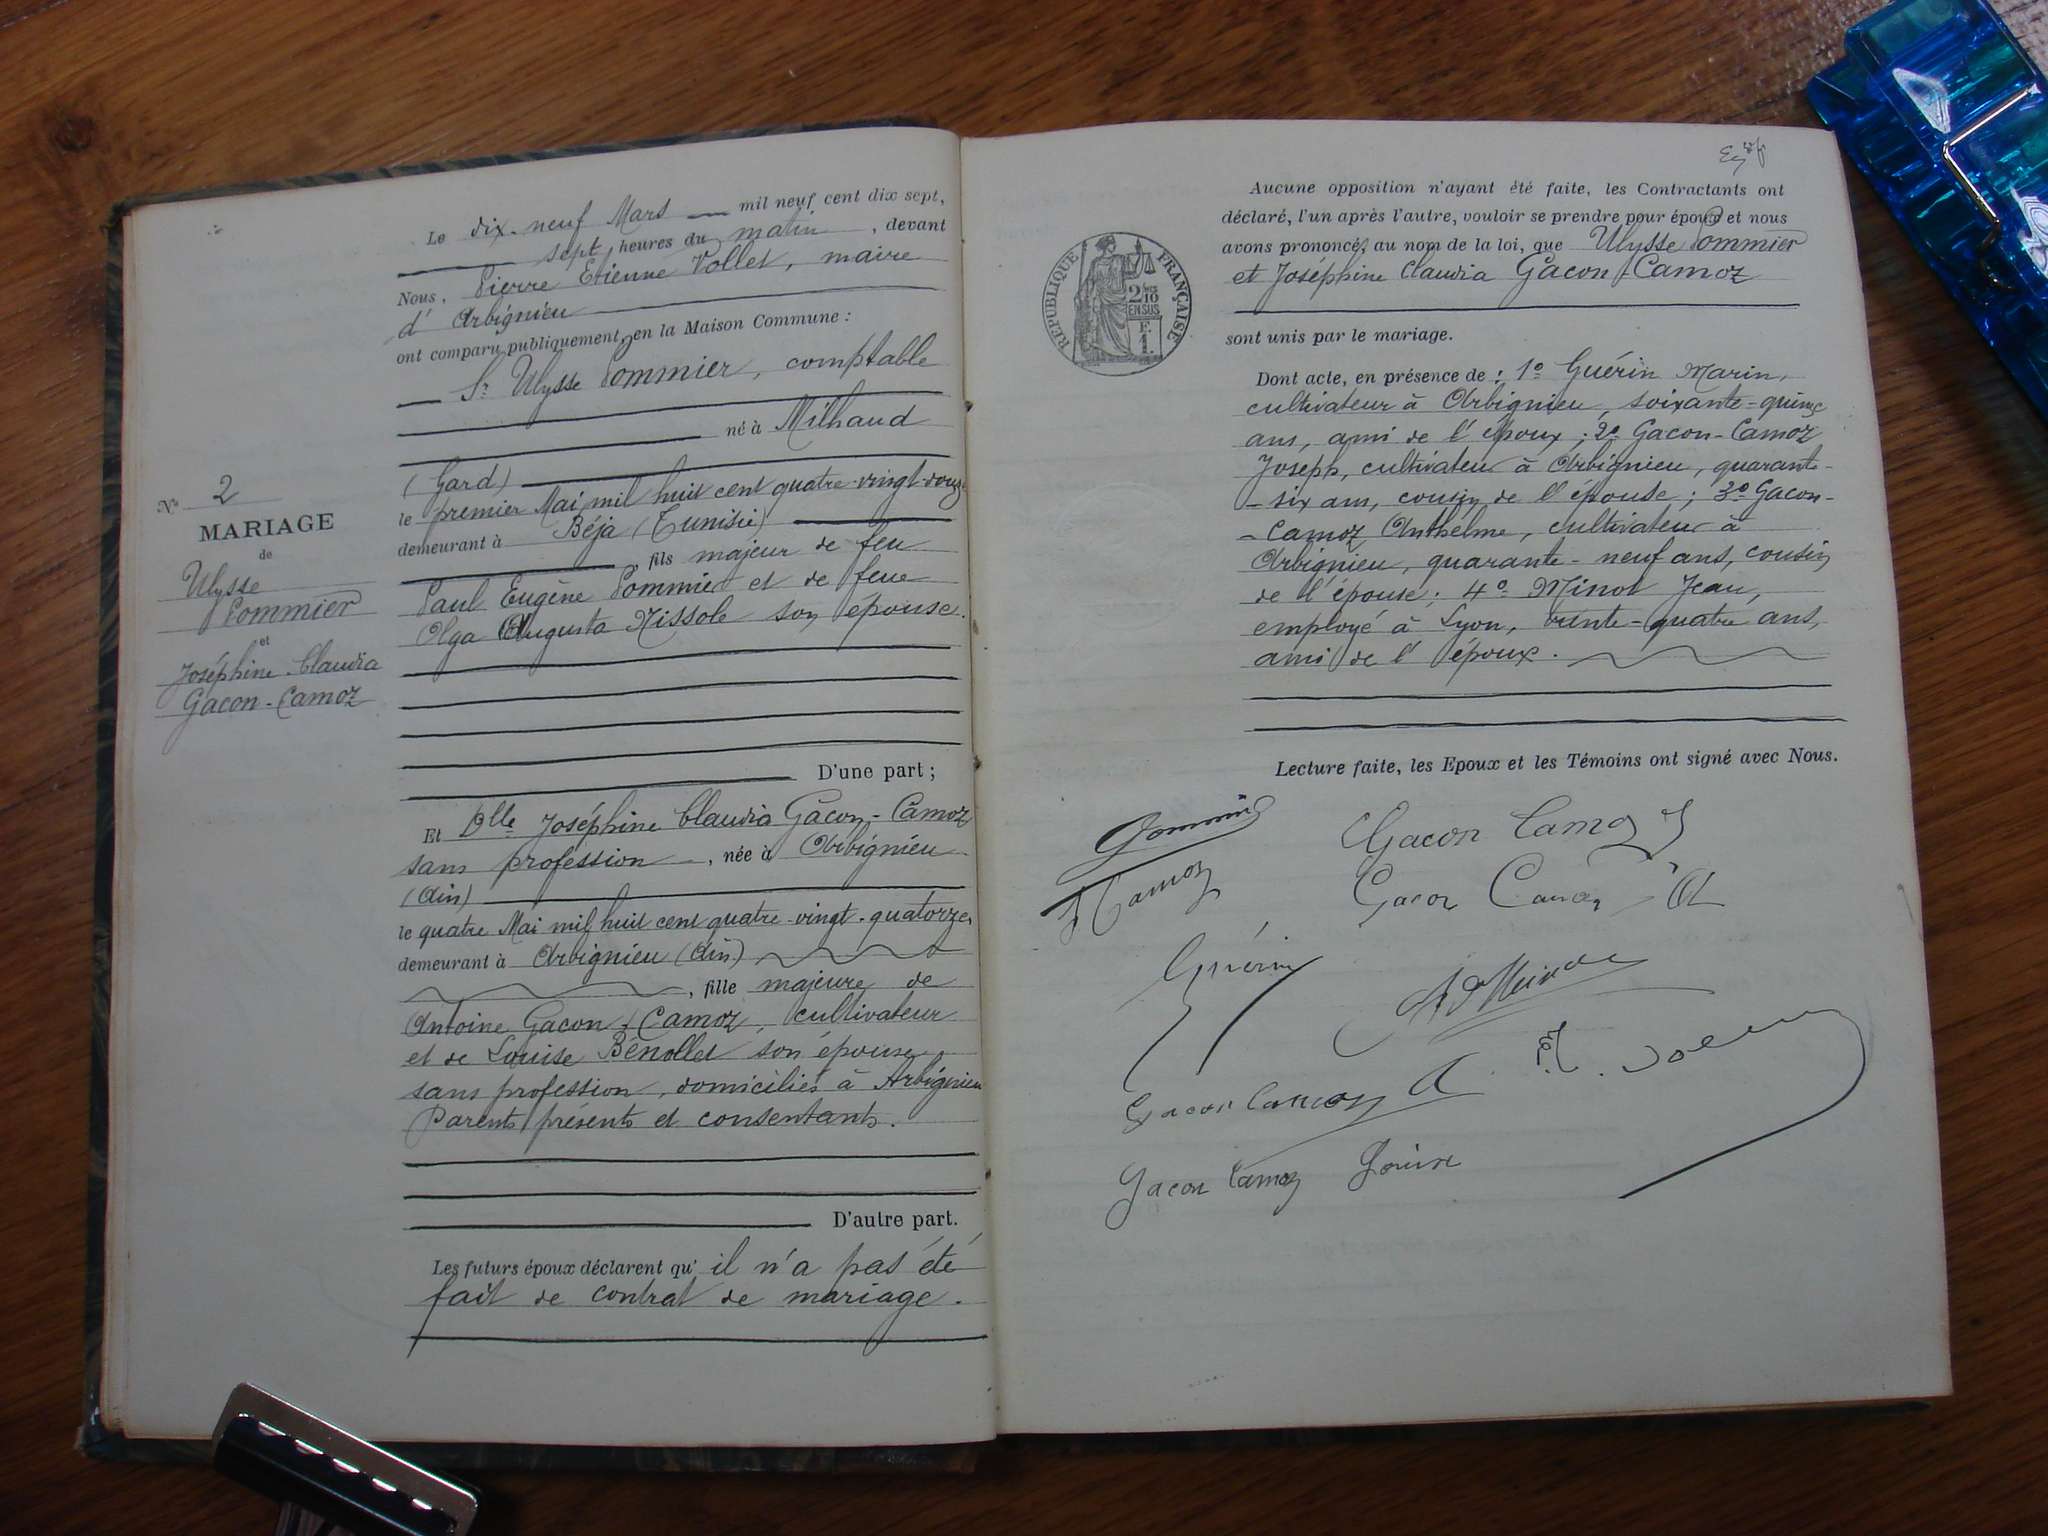 Le dix-neuf Mars mil neuf cent dix sept,
sept heures du matin, devant
Nous, Pierre Etienne Vollet, maire
d'Arbignieu
ont comparu publiquement, en la Maison Commune :
Sr Ulysse Pommier, comptable
né à Milhaud
(Gard)
le premier Mai mil huit cent quatre-vingt-douze
demeurant à Béja (Tunisie)
, fils majeur de feu
Paul Eugène Pommier et de feue
Olga Augusta Nissole son épouse.
D'une part ;
N° 2
MARIAGE
de
Ulysse
Pommier
et
Joséphine-Claudia
Gacon-Camoz
Et Dlle Joséphine Claudia Gacon-Camoz
sans profession, née à Arbignieu
(Ain)
le quatre Mai mil huit cent quatre-vingt-quatorze,
demeurant à Arbignieu (Ain)
, fille majeure de
Antoine Gacon-Camoz, cultivateur
et de Louise Bénollet son épouse
sans profession, domiciliés à Arbignieu
Parents présents et consentants.
D'autre part.
Les futurs époux déclarent qu'il n'a pas été
fait de contrat de mariage.
Aucune opposition n'ayant été faite, les Contractants ont
déclaré, l'un après l'autre, vouloir se prendre pour époux et nous
avons prononcé, au nom de la loi, que Ulysse Pommier
et Joséphine Claudia Gacon-Camoz
sont unis par le mariage.
RÉPUBLIQUE FRANÇAISE
2/10
EN SUS
F.
1.
Dont acte, en présence de : 1° Guérin Marin,
cultivateur à Arbignieu, soixante-quinze
ans, ami de l'époux ; 2° Gacon-Camoz
Joseph, cultivateur à Arbignieu, quarante-
-six ans, cousin de l'épouse ; 3° Gacon-
-Camoz Anthelme, cultivateur à
Arbignieu, quarante-neuf ans, cousin
de l'épouse ; 4° Minot Jean,
employé à Lyon, trente-quatre ans,
ami de l'époux.
Lecture faite, les Epoux et les Témoins ont signé avec Nous.
Pommier
Gacon Camoz J
J Camoz
Gacon Camoz A
Guérin
Gacon Camoz A
Gacon Camoz Louise